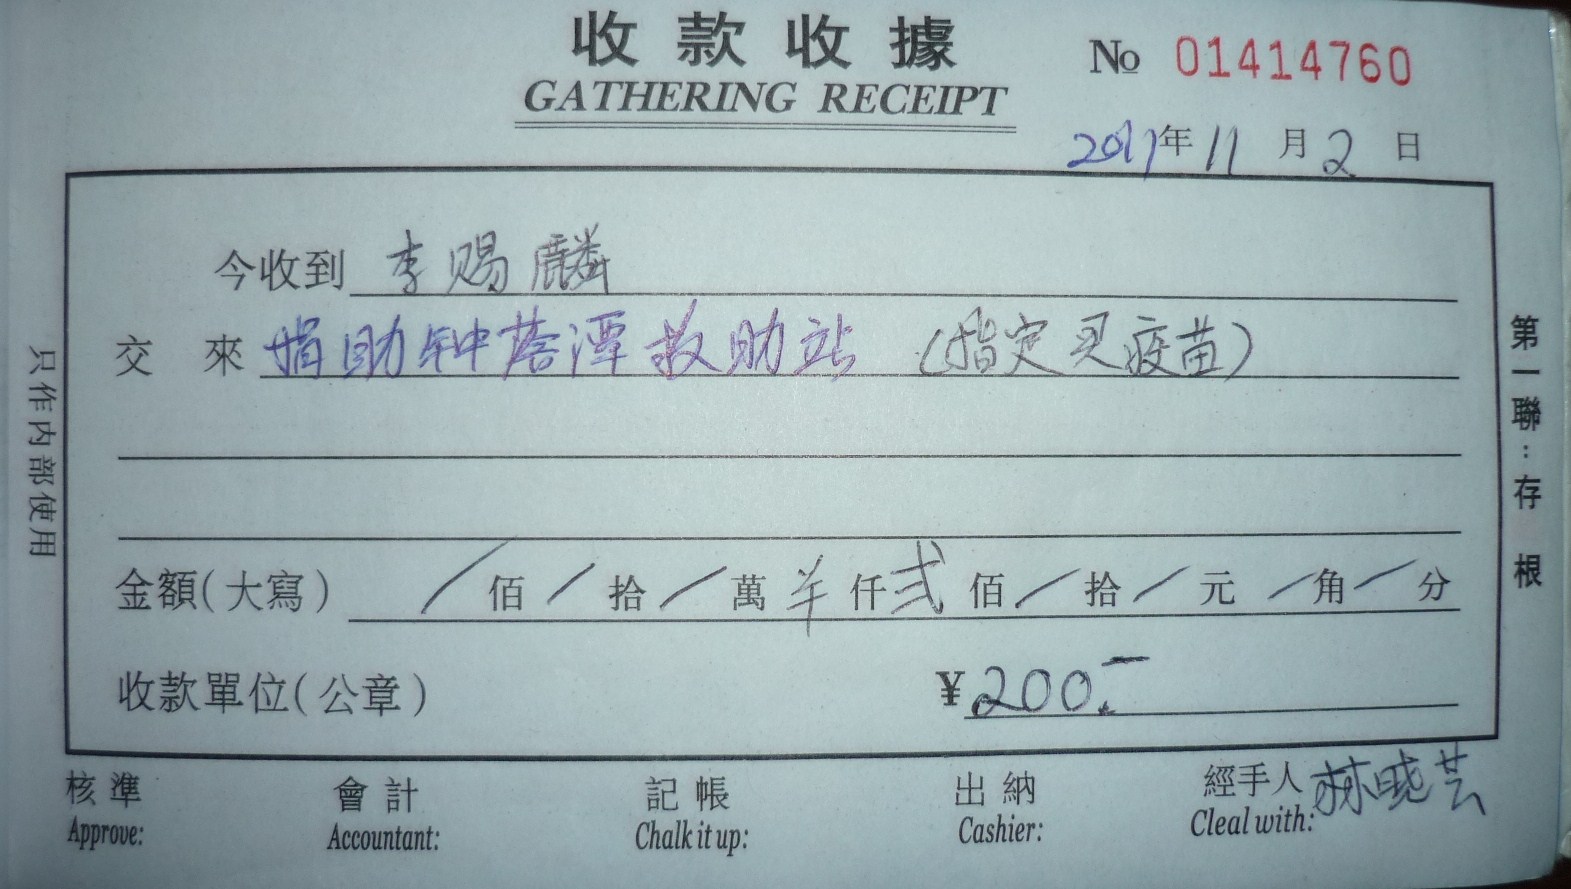 收款收據
GATHERING RECEIPT
No 01414760
2011年11月2日
今收到 李赐麟
交來 捐助钟落潭救助站 (指定买疫苗)
金額(大寫) / 佰 / 拾 / 萬 羊 仟 弍 佰 / 拾 / 元 / 角 / 分
收款單位(公章) ¥200.-
核準 會計 記帳 出納 經手人 林晓芸
Approve: Accountant: Chalk it up: Cashier: Cleal with:
只作内部使用
第一聯:存根